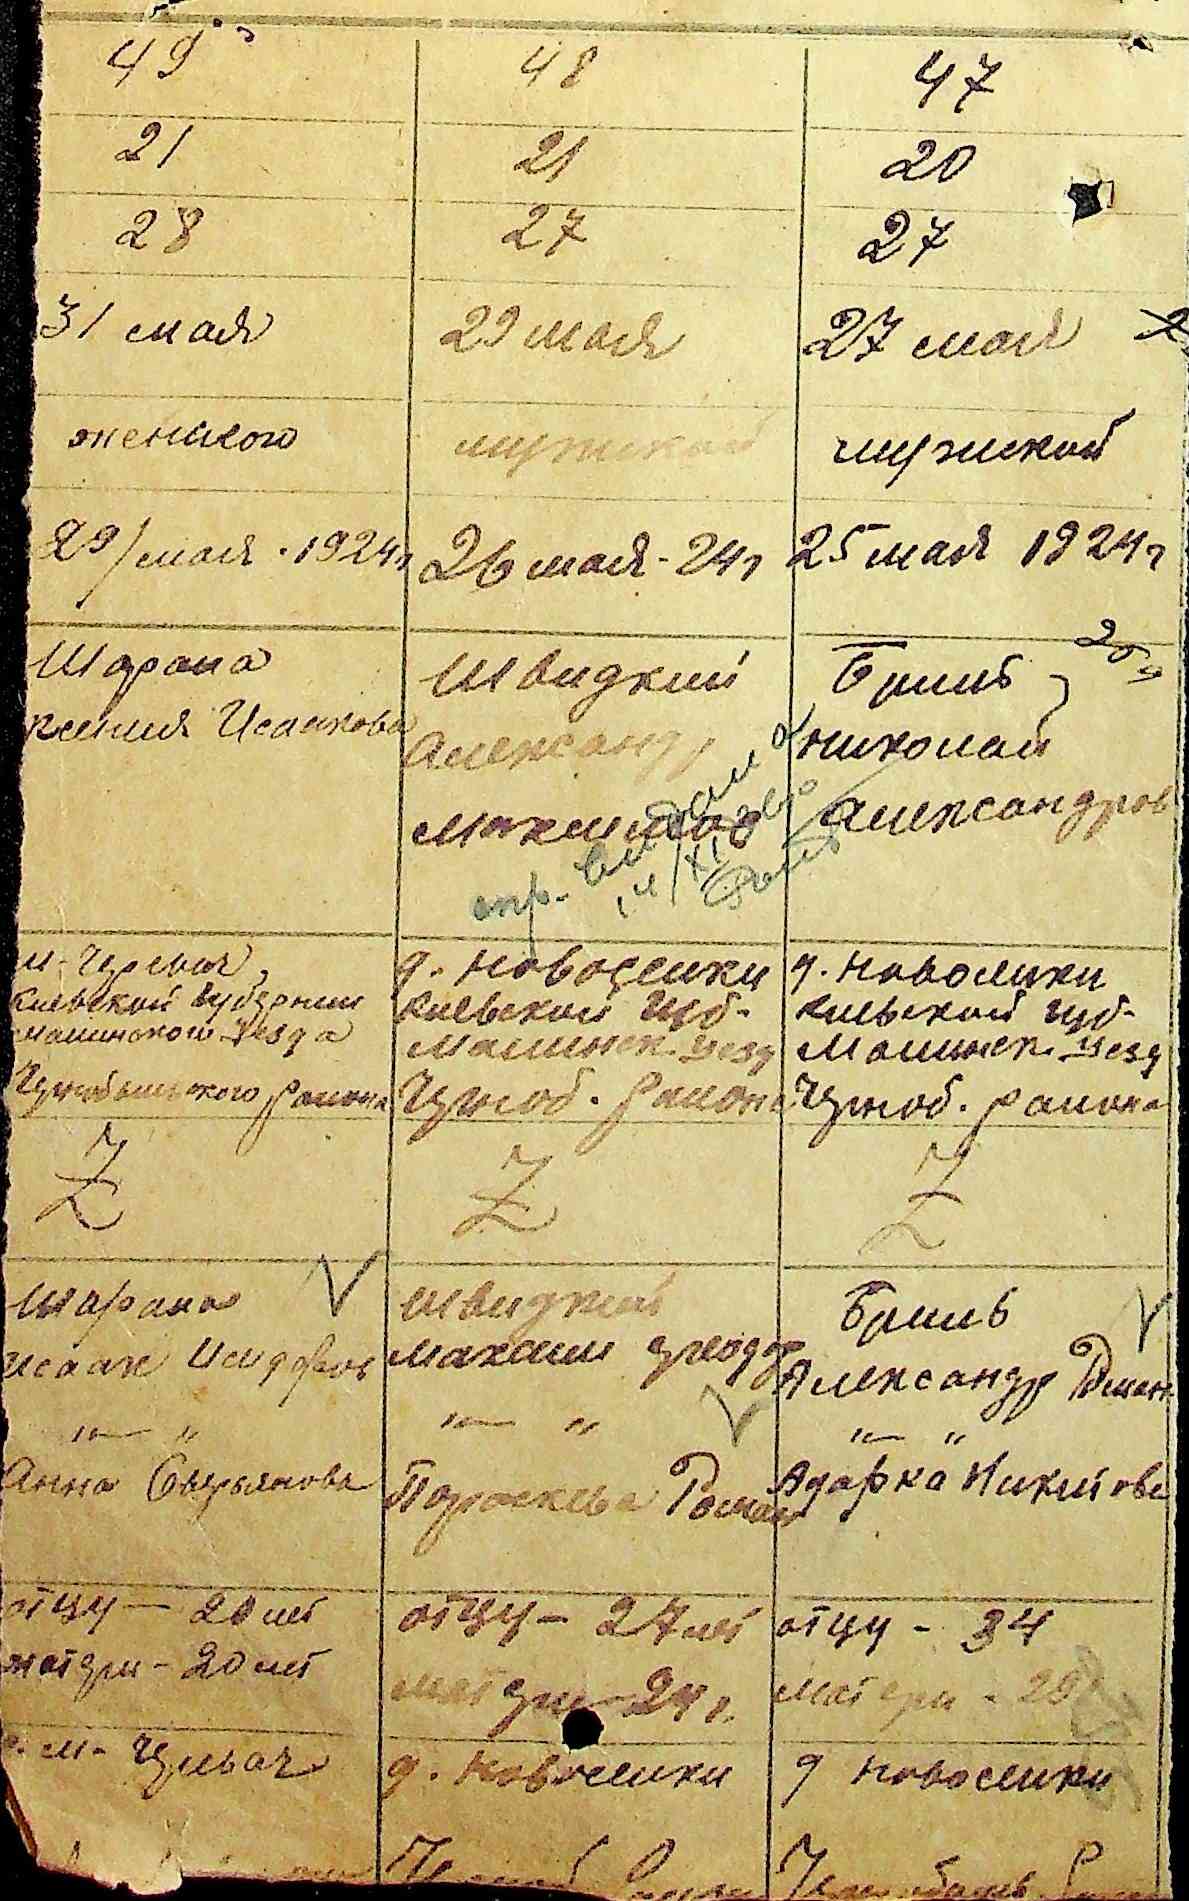 49
48
47
21
21
20
28
27
27
31 мая
29 мая
27 мая
женского
мужской
мужской
29/мая - 1924г
26 мая - 24г
25 мая 1924г
Шарана
Исаакова
Швидкий
Александр
Максимов
Бриль
Николай
Александров
м. Черевач,
Киевской Губернии
Малинского Уезда
Чернобыльского района
д. Новоселки
Киевской Губ-
Малинск. Уезд
Черноб. района
д. Новоселки
Киевской Губ-
Малинск. Уезд
Черноб. района
Z
Z
Z
Шарана
Исаак Исидоров
"— "
Анна Северьянова
Швидкий
Максим
"— "
Параскева Роман
Бриль
Александр Роман
"— "
Адарка Никитова
отцу — 20 лет
матери - 20 лет
отцу - 27 лет
матери - 24 г.
отцу - 34
матери - 28
м. Черевач
д. Новоселки
д Новоселки